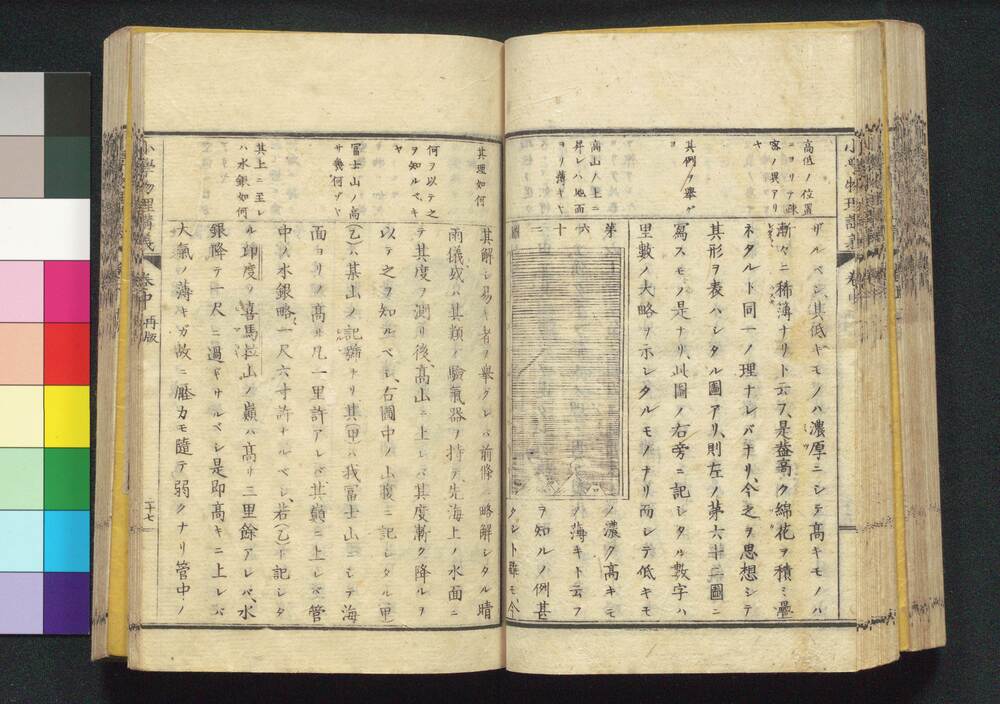 高低ノ位置
ニヨリテ疎
密ノ異アリ
ヤ
其例ヲ舉ゲ
ヨ
高山ノ上ニ
昇レハ地面
ヨリ薄キヤ
ザルベシ、其低キモノハ濃厚ニシテ高キモノハ
漸々ニ稀薄ナリト云フ、是蓋高ク綿花ヲ積ミ疊
ネタルト同一ノ理ナレバナリ、今之ヲ思想シテ
其形ヲ表ハシタル圖アリ、則左ノ第六十二圖ニ
寫スモノ是ナリ、此圖ノ右旁ニ記シタル數字ハ
里數ノ大略ヲ示シタルモノナリ而シテ低キモ
第六十二圖
ノハ濃ク高キモ
ノハ薄キト云フ
ヲ知ルノ例甚
タシト雖モ今
其理如何
何ヲ以テ之
ヲ知ルベキ
ヤ
冨士山ノ高
サ幾何ゾヤ
其上ニ至レ
ハ水銀如何
其解シ易キ者ヲ舉グレバ前條ニ略解シタル晴
雨儀或ハ其類ノ驗氣器ヲ持テ先海上ノ水面ニ
テ其度ヲ測リ後、高山ニ上レバ其度漸ク降ルヲ
以テ之ヲ知ルベシ、右圖中ノ山腹ニ記シタル里
(乙)ハ某山ノ記號ナリ其(甲)ハ我冨士山ニシテ海
面ヨリノ高サ凡一里許アレバ其巓ニ上レバ管
中ノ水銀略一尺六寸許ナルベシ、若(乙)ト記シタ
ル印度ノ喜馬拉山ノ巓ハ高サ三里餘アレバ、水
銀降テ一尺ニ過ギサルベシ是即高キニ上レバ
大氣ノ薄キガ故ニ壓力モ隨テ弱クナリ管中ノ
小學物理講義
卷中
再版
二十七